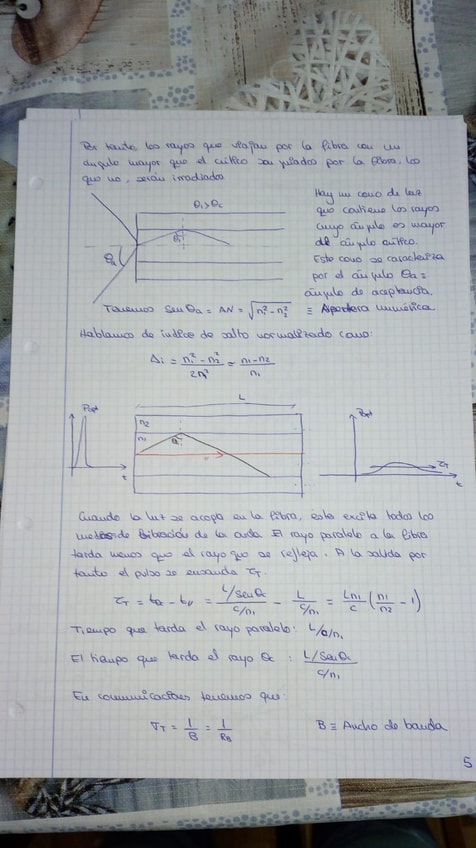 Por tanto, los rayos que viajan por la fibra con un
ángulo mayor que el crítico son guiados por la fibra, los
que no, serán irradiados
Hay un cono de luz
que contiene los rayos
cuyo ángulo es mayor
del ángulo crítico.
Este cono se caracteriza
por el ángulo θa =
ángulo de aceptancia.
θi > θc
θi
θa
Tenemos sen θa = AN = √(n₁² - n₂²) ≡ Apertura numérica
Hablamos de índice de salto normalizado como:
Δi = (n₁² - n₂²)/(2n₁²) ≈ (n₁ - n₂)/n₁
L
Popt
n2
n1
θc
t
Popt
τT
t
Cuando la luz se acopa en la fibra, esta excita todos los
modos de vibración de la onda. El rayo paralelo a la fibra
tarda menos que el rayo que se refleja. A la salida por
tanto el pulso se ensancha τT.
τT = - t// = (L/sen θc)/(c/n₁) - L/(c/n₁) = (Ln₁/c)(n₁/n₂ - 1)
Tiempo que tarda el rayo paralelo: L/c/n₁
El tiempo que tarda el rayo θc : (L/sen θc)/(c/n₁)
En comunicaciones tenemos que:
τT = 1/B = 1/RB B ≡ Ancho de banda
5